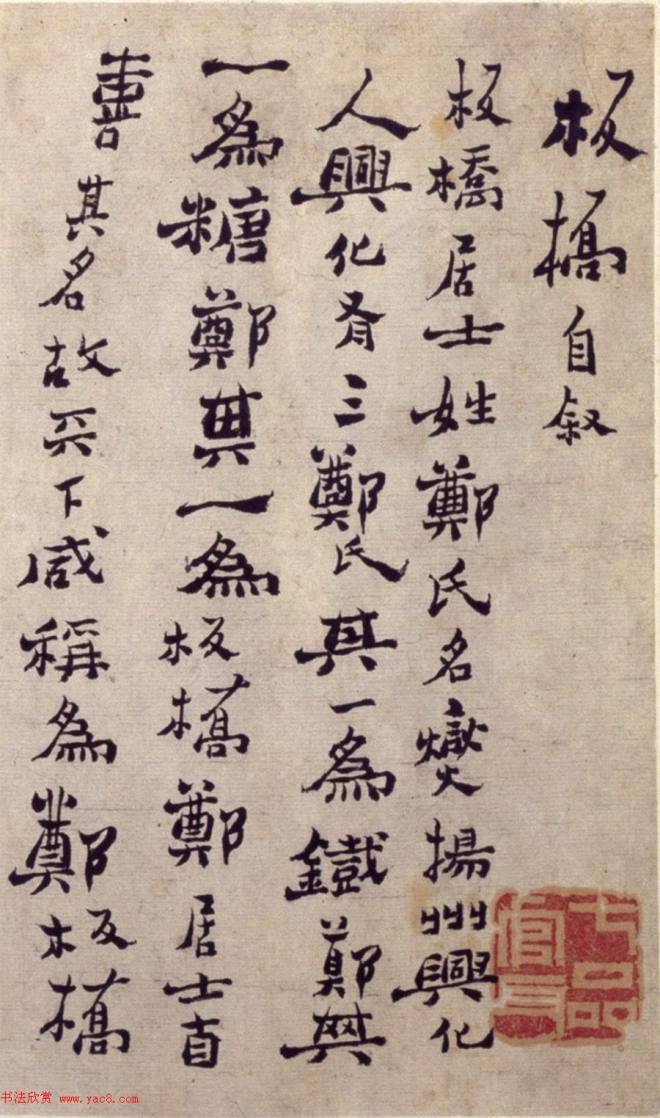 板橋自叙
板橋居士姓鄭氏名燮揚州興化
人興化有三鄭氏其一為鐵鄭其
一為糖鄭其一為板橋鄭居士自
喜其名故天下咸稱為鄭板橋
七品
官耳
书法欣赏 www.yac8.com